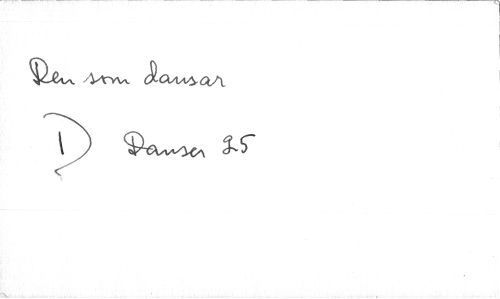 Den som dansar
D Danser 25